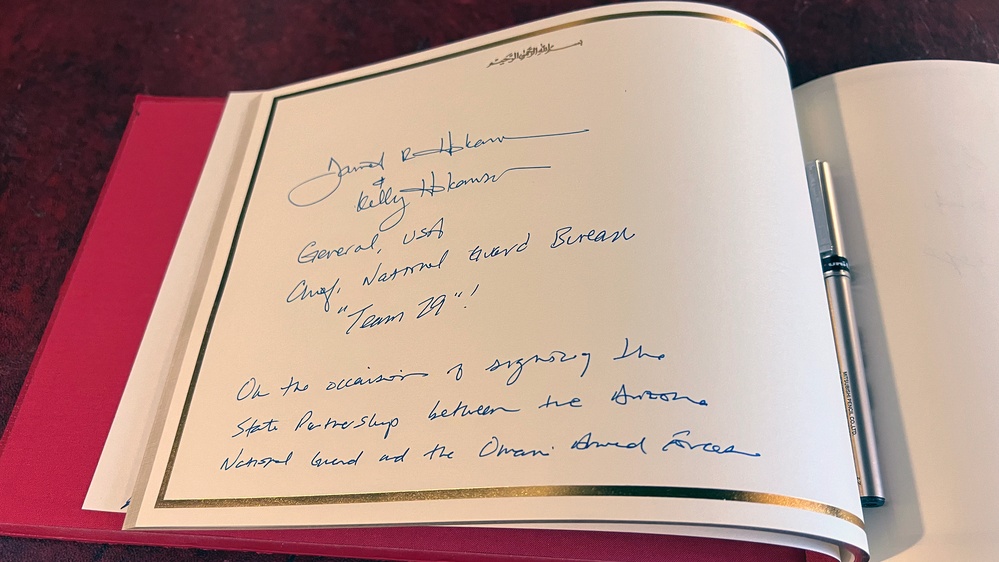 بسم الله الرحمن الرحيم
Daniel R Hokanson
+
Kelly Hokanson
General, USA
Chief, National Guard Bureau
"Team 29"!
On the occaision of signing the
State Partnership between the Arizona
National Guard and the Omani Armed Forces
uni
MITSUBISHI PENCIL CO., LTD